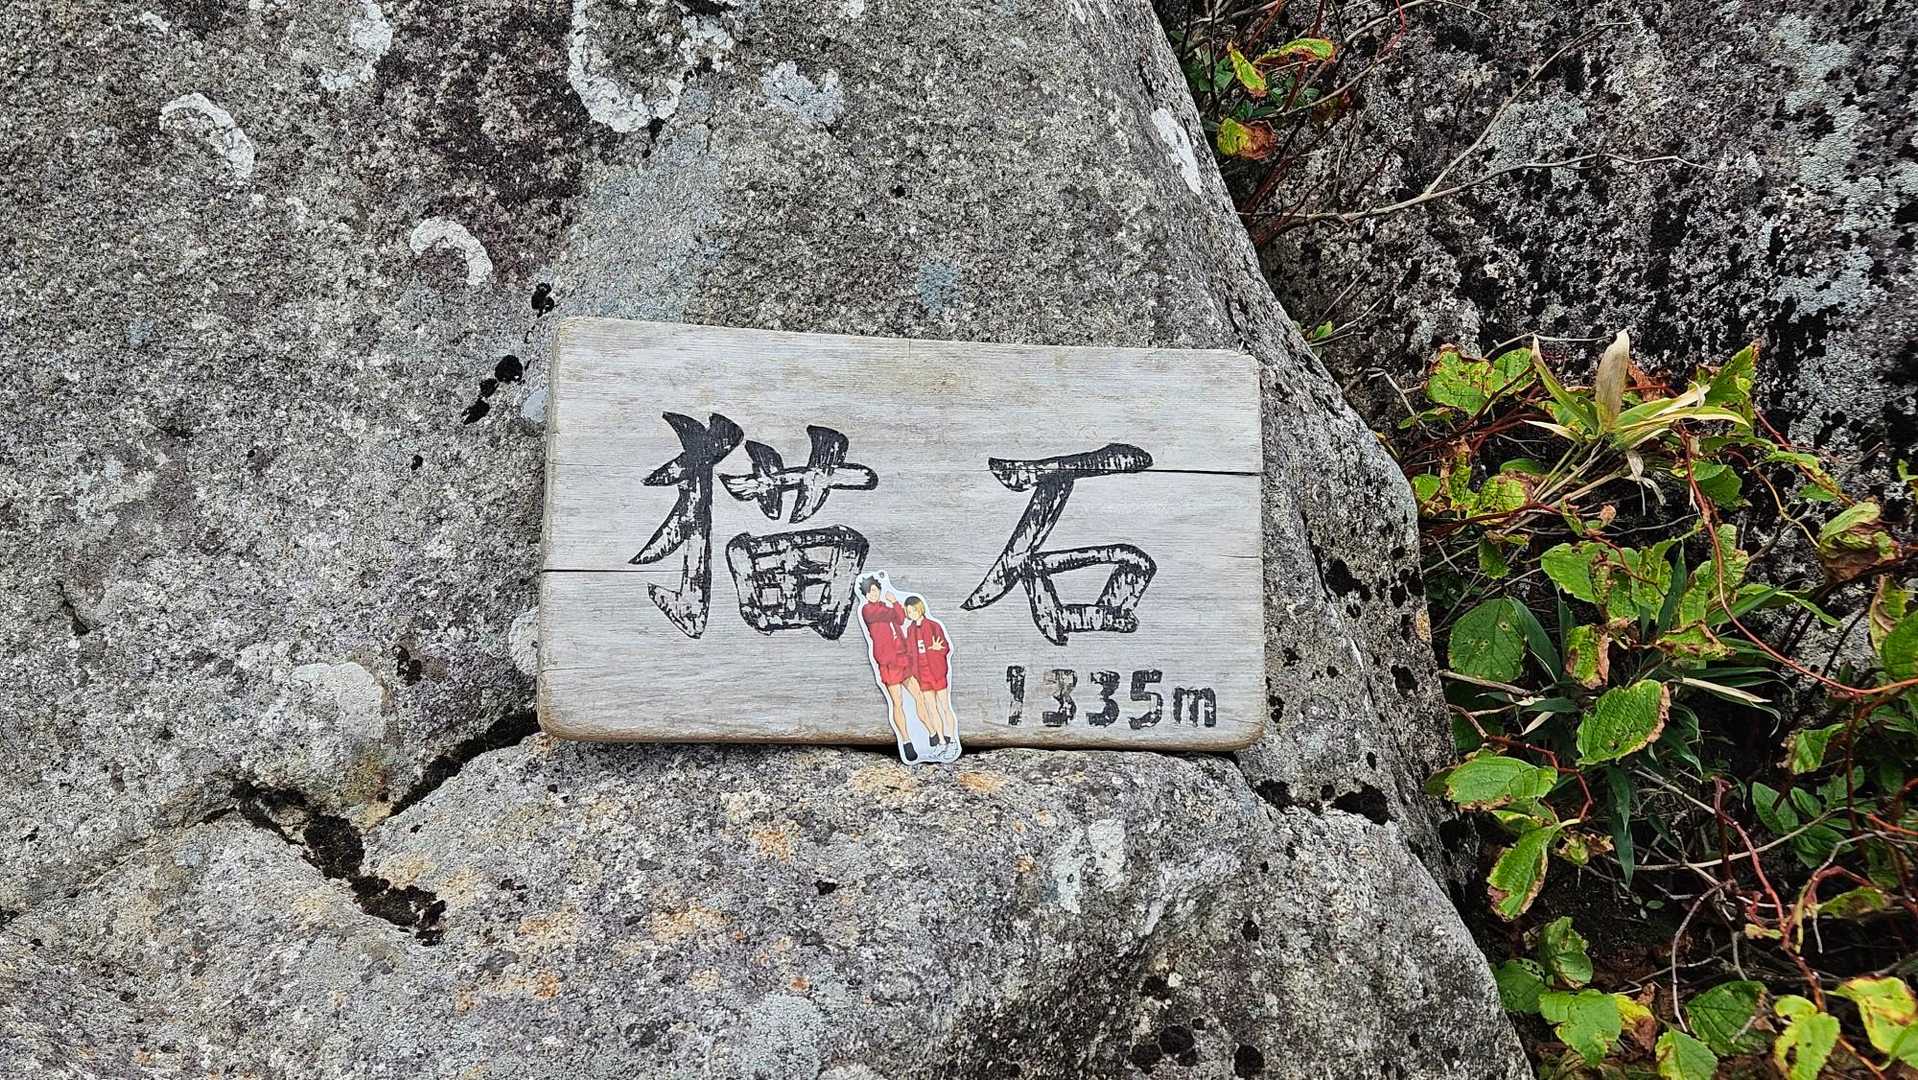 猫石
1335m
5